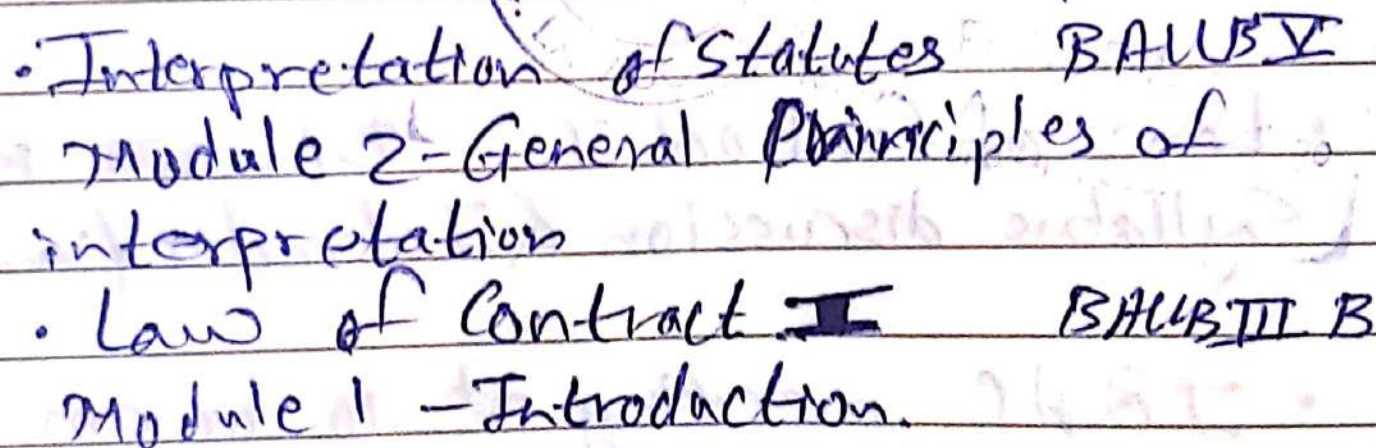 . Interpretation of Statutes BALLB V
Module 2-General Principles of
interpretation
. Law of Contract I BALLB III B
Module 1 - Introduction.